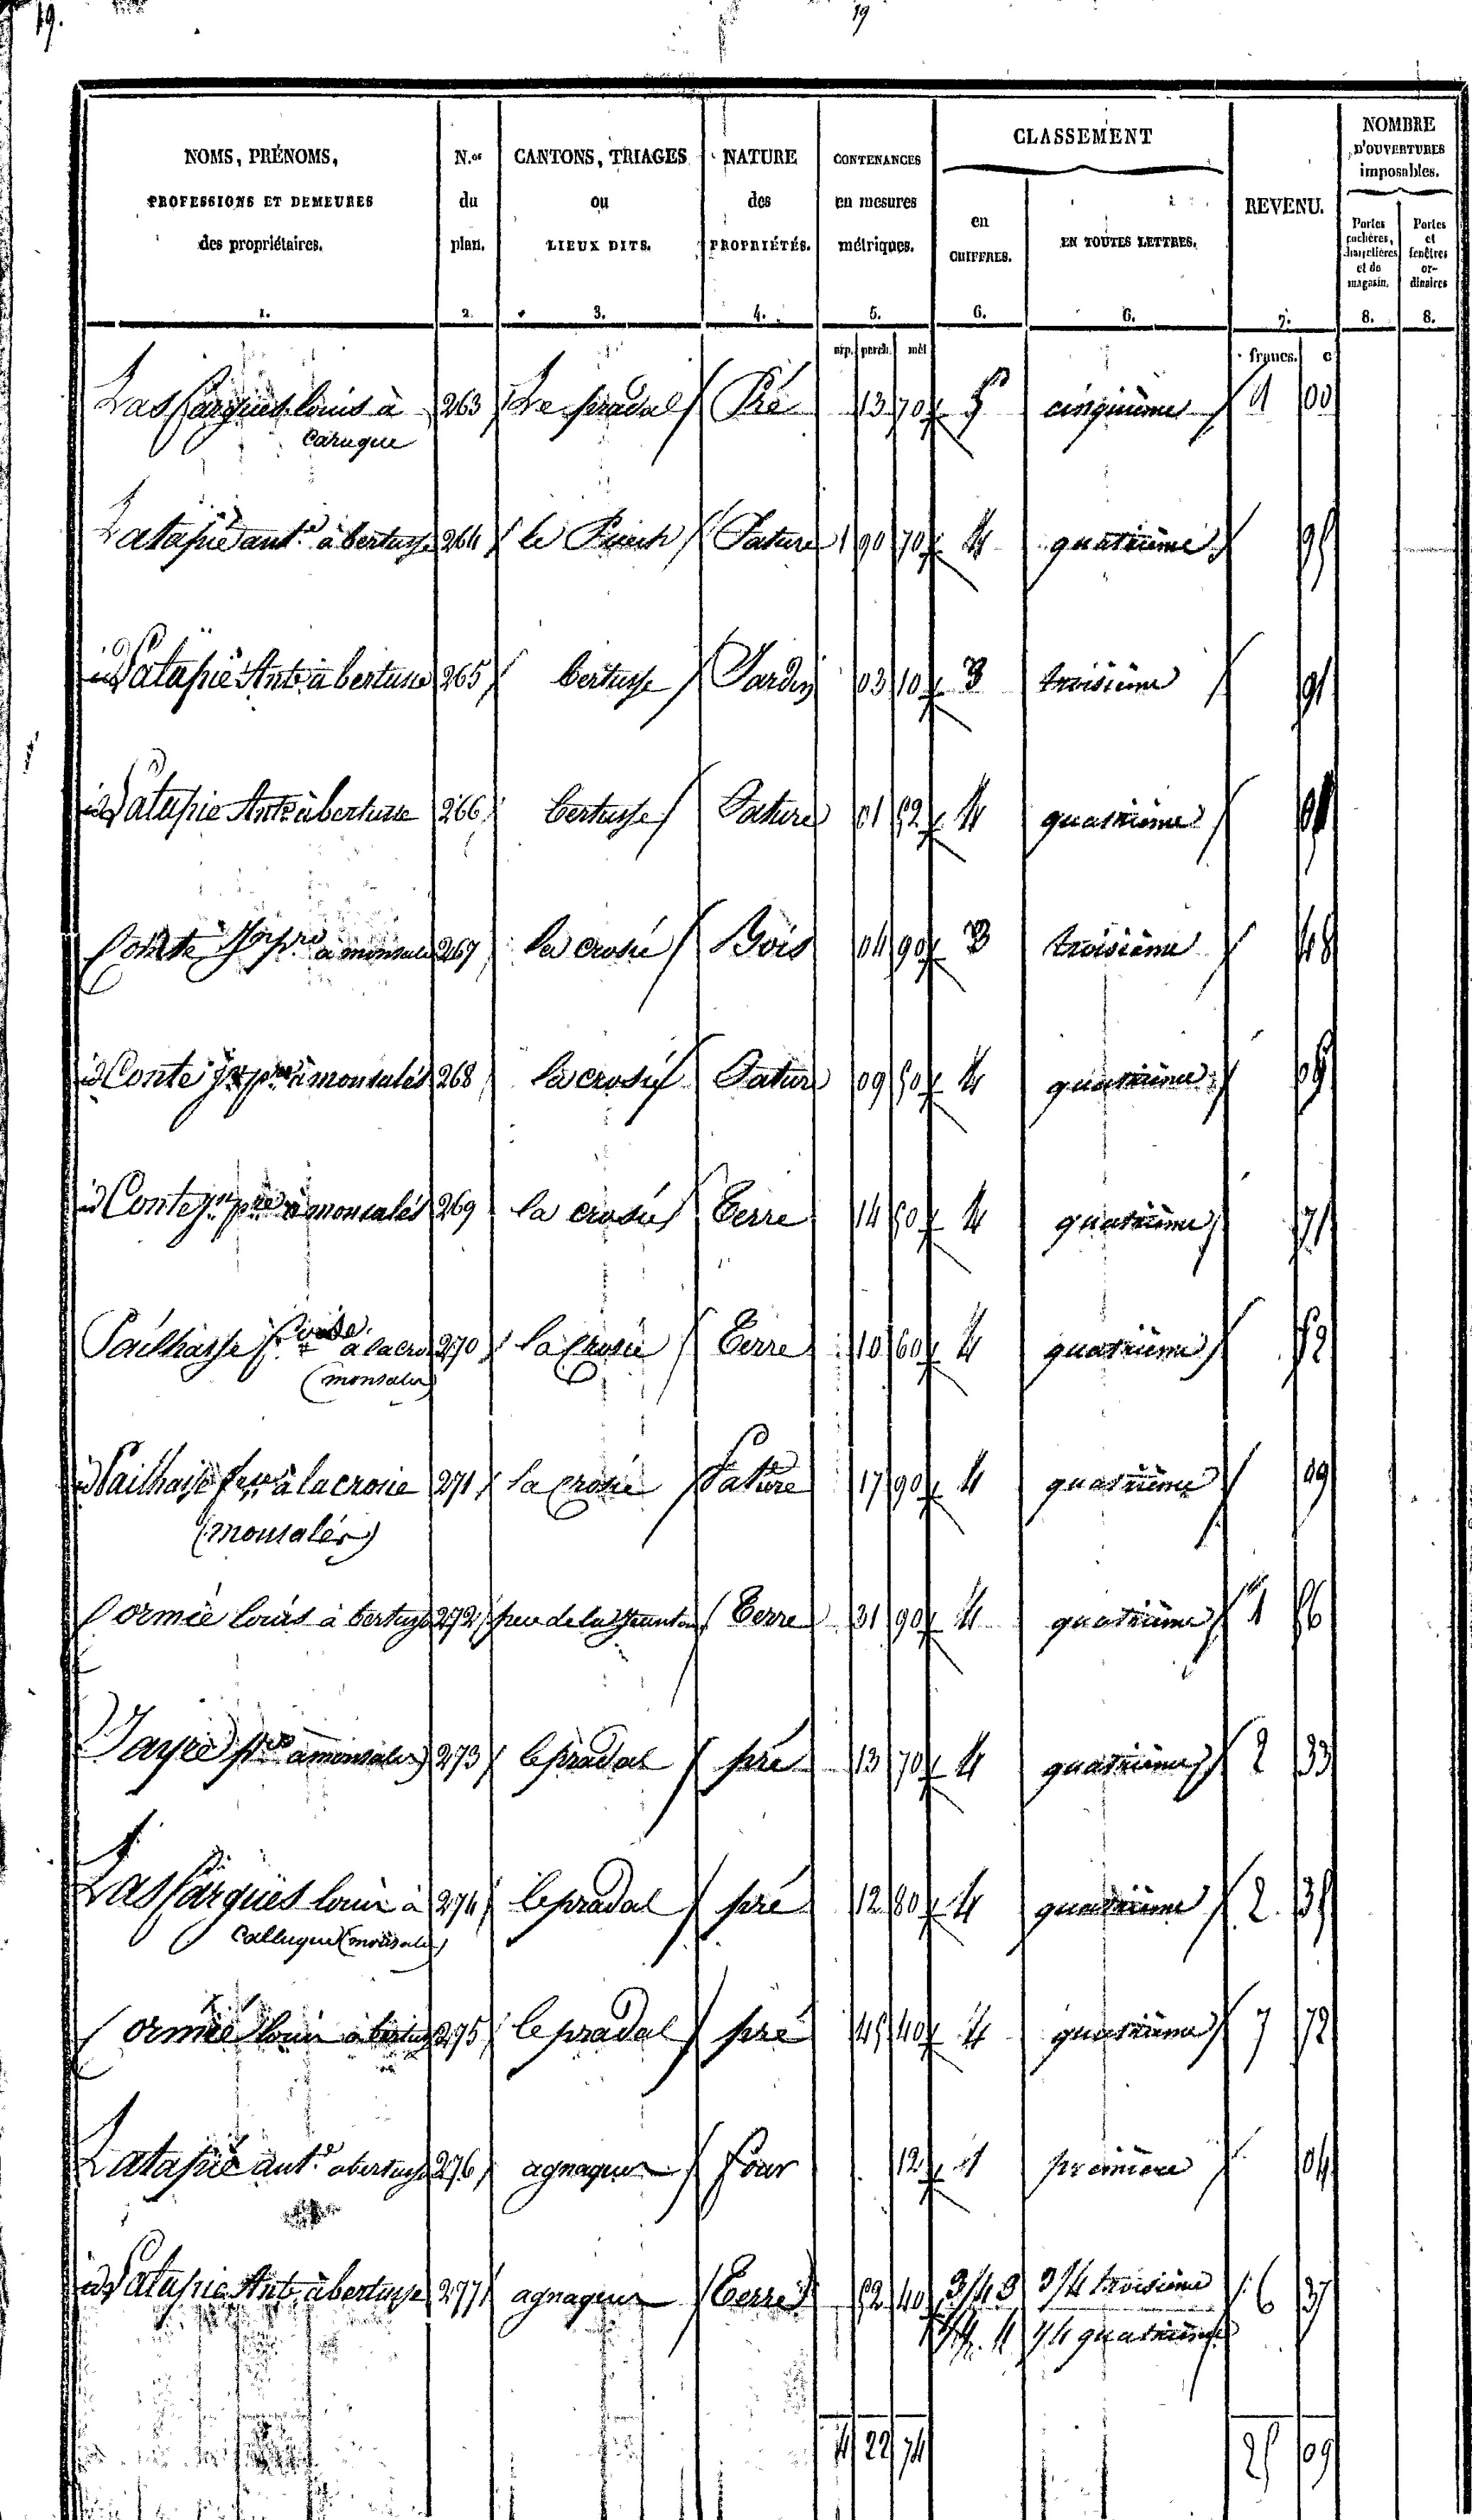 19.
19
NOMS, PRÉNOMS, PROFESSIONS ET DEMEURES des propriétaires. 1.
N.os du plan. 2.
CANTONS, TRIAGES ou LIEUX DITS. 3.
NATURE des PROPRIÉTÉS. 4.
CONTENANCES en mesures métriques. 5.
CLASSEMENT
en CHIFFRES. 6.
EN TOUTES LETTRES. 6.
REVENU. 7.
NOMBRE D'OUVERTURES imposables.
Portes cochères, charretières et de magasin. 8.
Portes et fenêtres ordinaires 8.
arp. perch. mèt francs. c
Lasfargues louis à 263 Le pradal Pré 13 70 5 cinquième 1 00
Carugue
Latapie ant.e à bertusse 264 le Puech Pature 1 90 70 4 quatrième 95
id Latapie Ant.e à bertusse 265 bertusse Jardin 03 10 3 troisième 91
id Latapie Ant.e à bertusse 266 bertusse Pature 01 52 4 quatrième 01
Conte à monsalés 267 la crosie Bois 04 90 3 troisième 48
id Conte à monsalés 268 la crosie Pature 09 50 4 quatrième 05
id Conte à monsalés 269 la crosie Terre 14 50 4 quatrième 71
Pailhasse à la cro 270 la Crosie Terre 10 60 4 quatrième 52
(monsalés)
id Pailhasse à la crosie 271 la Crosie Pature 17 90 4 quatrième 09
(monsalés)
Cormié louis à bertusse 272 Terre 31 90 4 quatrième 1 56
Jayre à monsalés 273 le pradal pré 13 70 4 quatrième 2 33
Lasfargues louis à 274 le pradal pré 12 80 4 quatrième 2 35
Callugue (monsalés)
Cormié louis à bertusse 275 le pradal pré 45 40 4 quatrième 7 72
Latapie ant.e à bertusse 276 agnagues four 12 1 première 04
id Latapie Ant.e à bertusse 277 agnagues Terre 52 40 3/4 3 3/4 troisième 6 37
1/4 4 1/4 quatrième
4 22 74 25 09